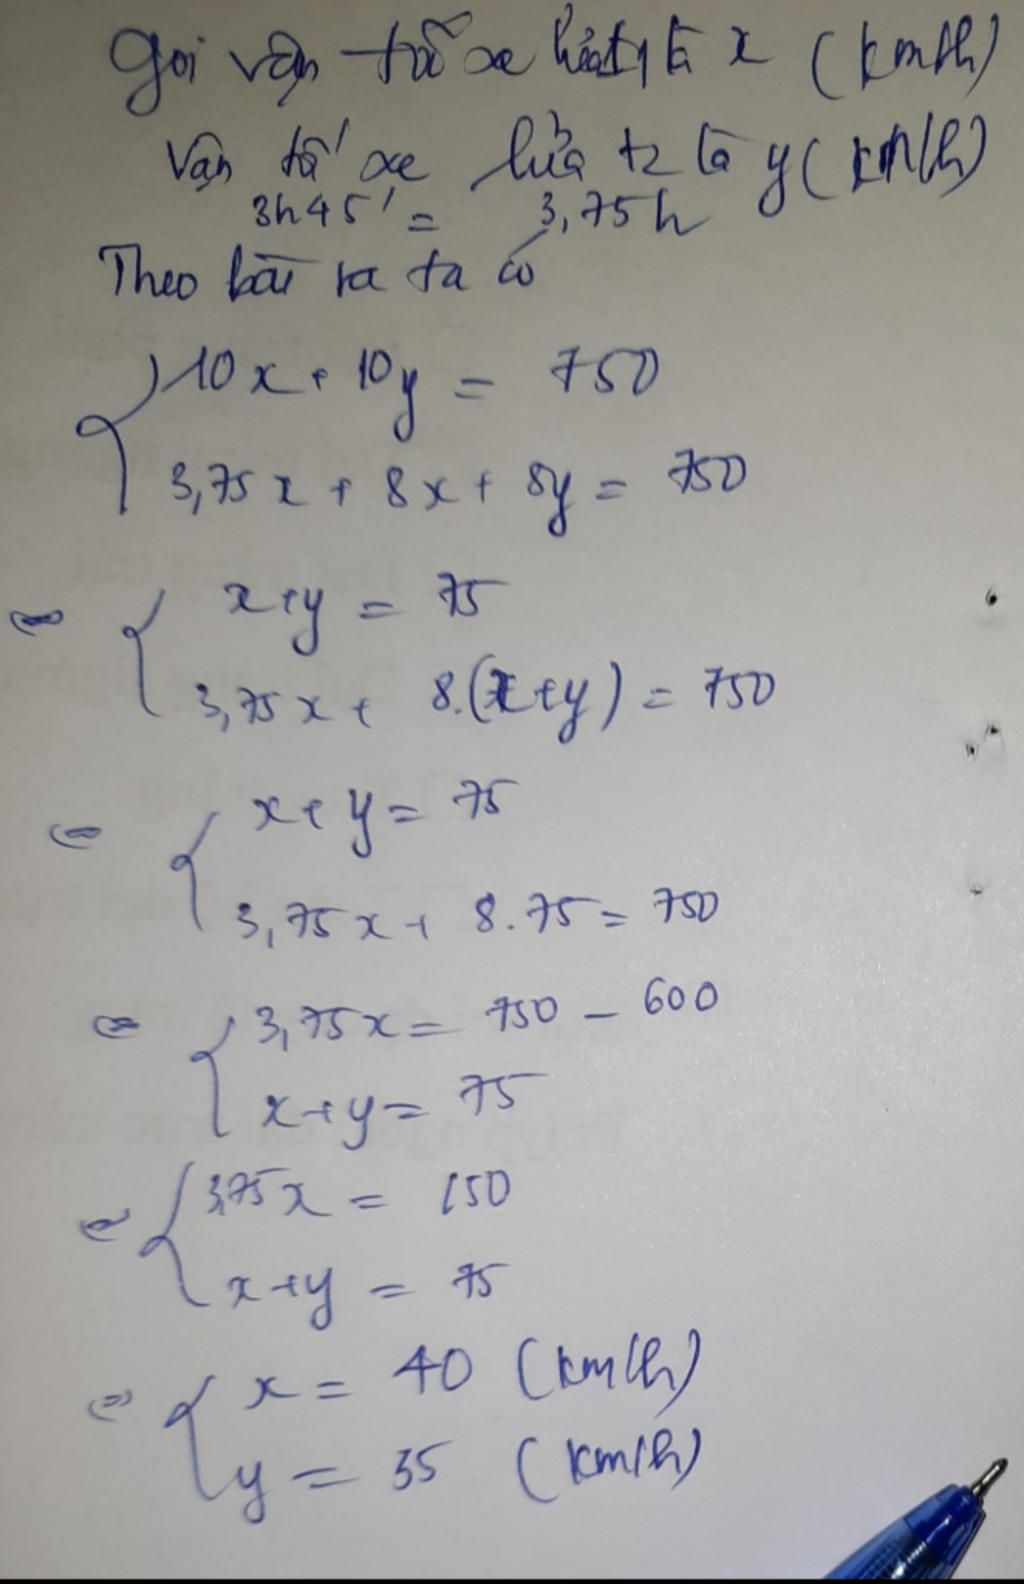 Gọi vận tốc xe lửa t1 là x (km/h)
Vận tốc xe lửa t2 là y (km/h)
3h45' = 3,75h
Theo bài ra ta có
{ 10x + 10y = 750
3,75x + 8x + 8y = 750
⇔ { x+y = 75
3,75x + 8.(x+y) = 750
⇔ { x+y = 75
3,75x + 8.75 = 750
⇔ { 3,75x = 750 - 600
x+y = 75
⇔ { 3,75x = 150
x+y = 75
⇔ { x = 40 (km/h)
y = 35 (km/h)